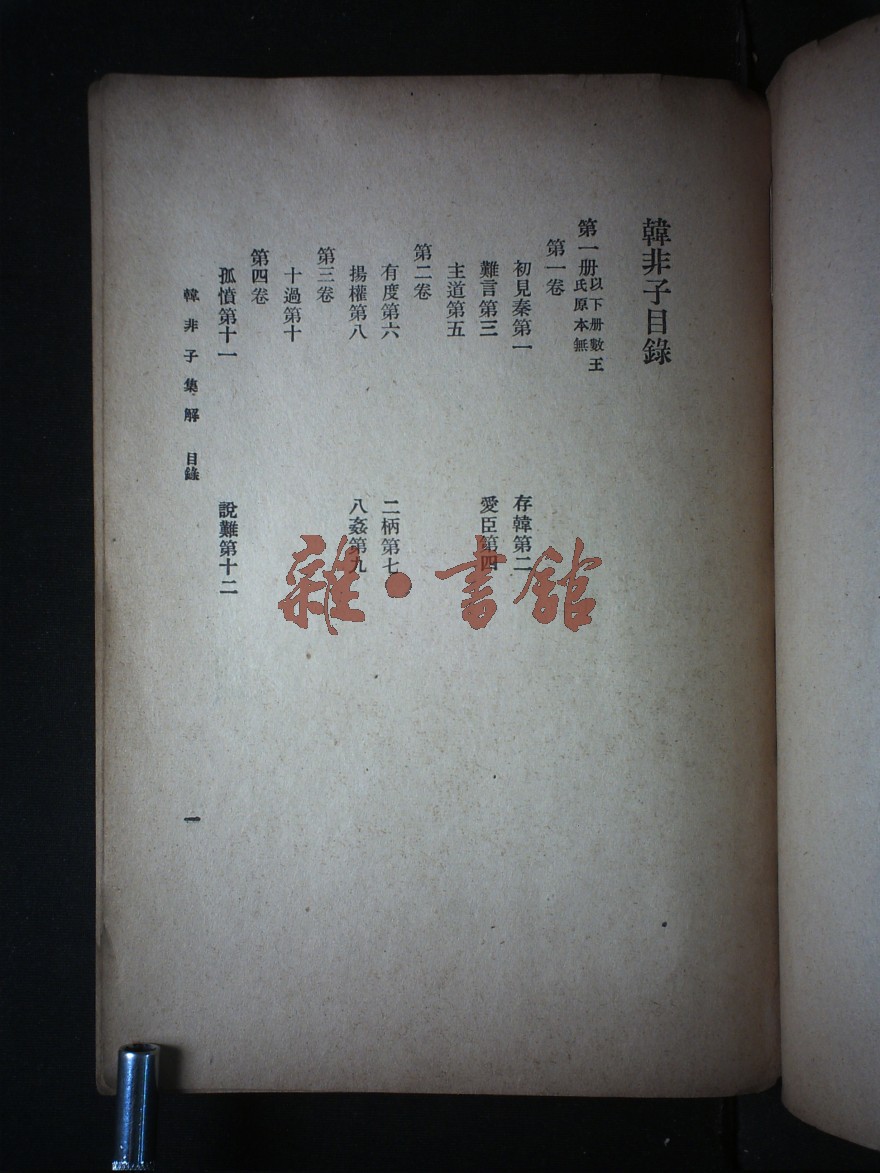 韓非子目錄
第一册 以下册數王氏原本無
第一卷
初見秦第一 存韓第二
難言第三 愛臣第四
主道第五
第二卷
有度第六 二柄第七
揚權第八 八姦第九
第三卷
十過第十
第四卷
孤憤第十一 說難第十二
韓非子集解 目錄 一
雜·書館